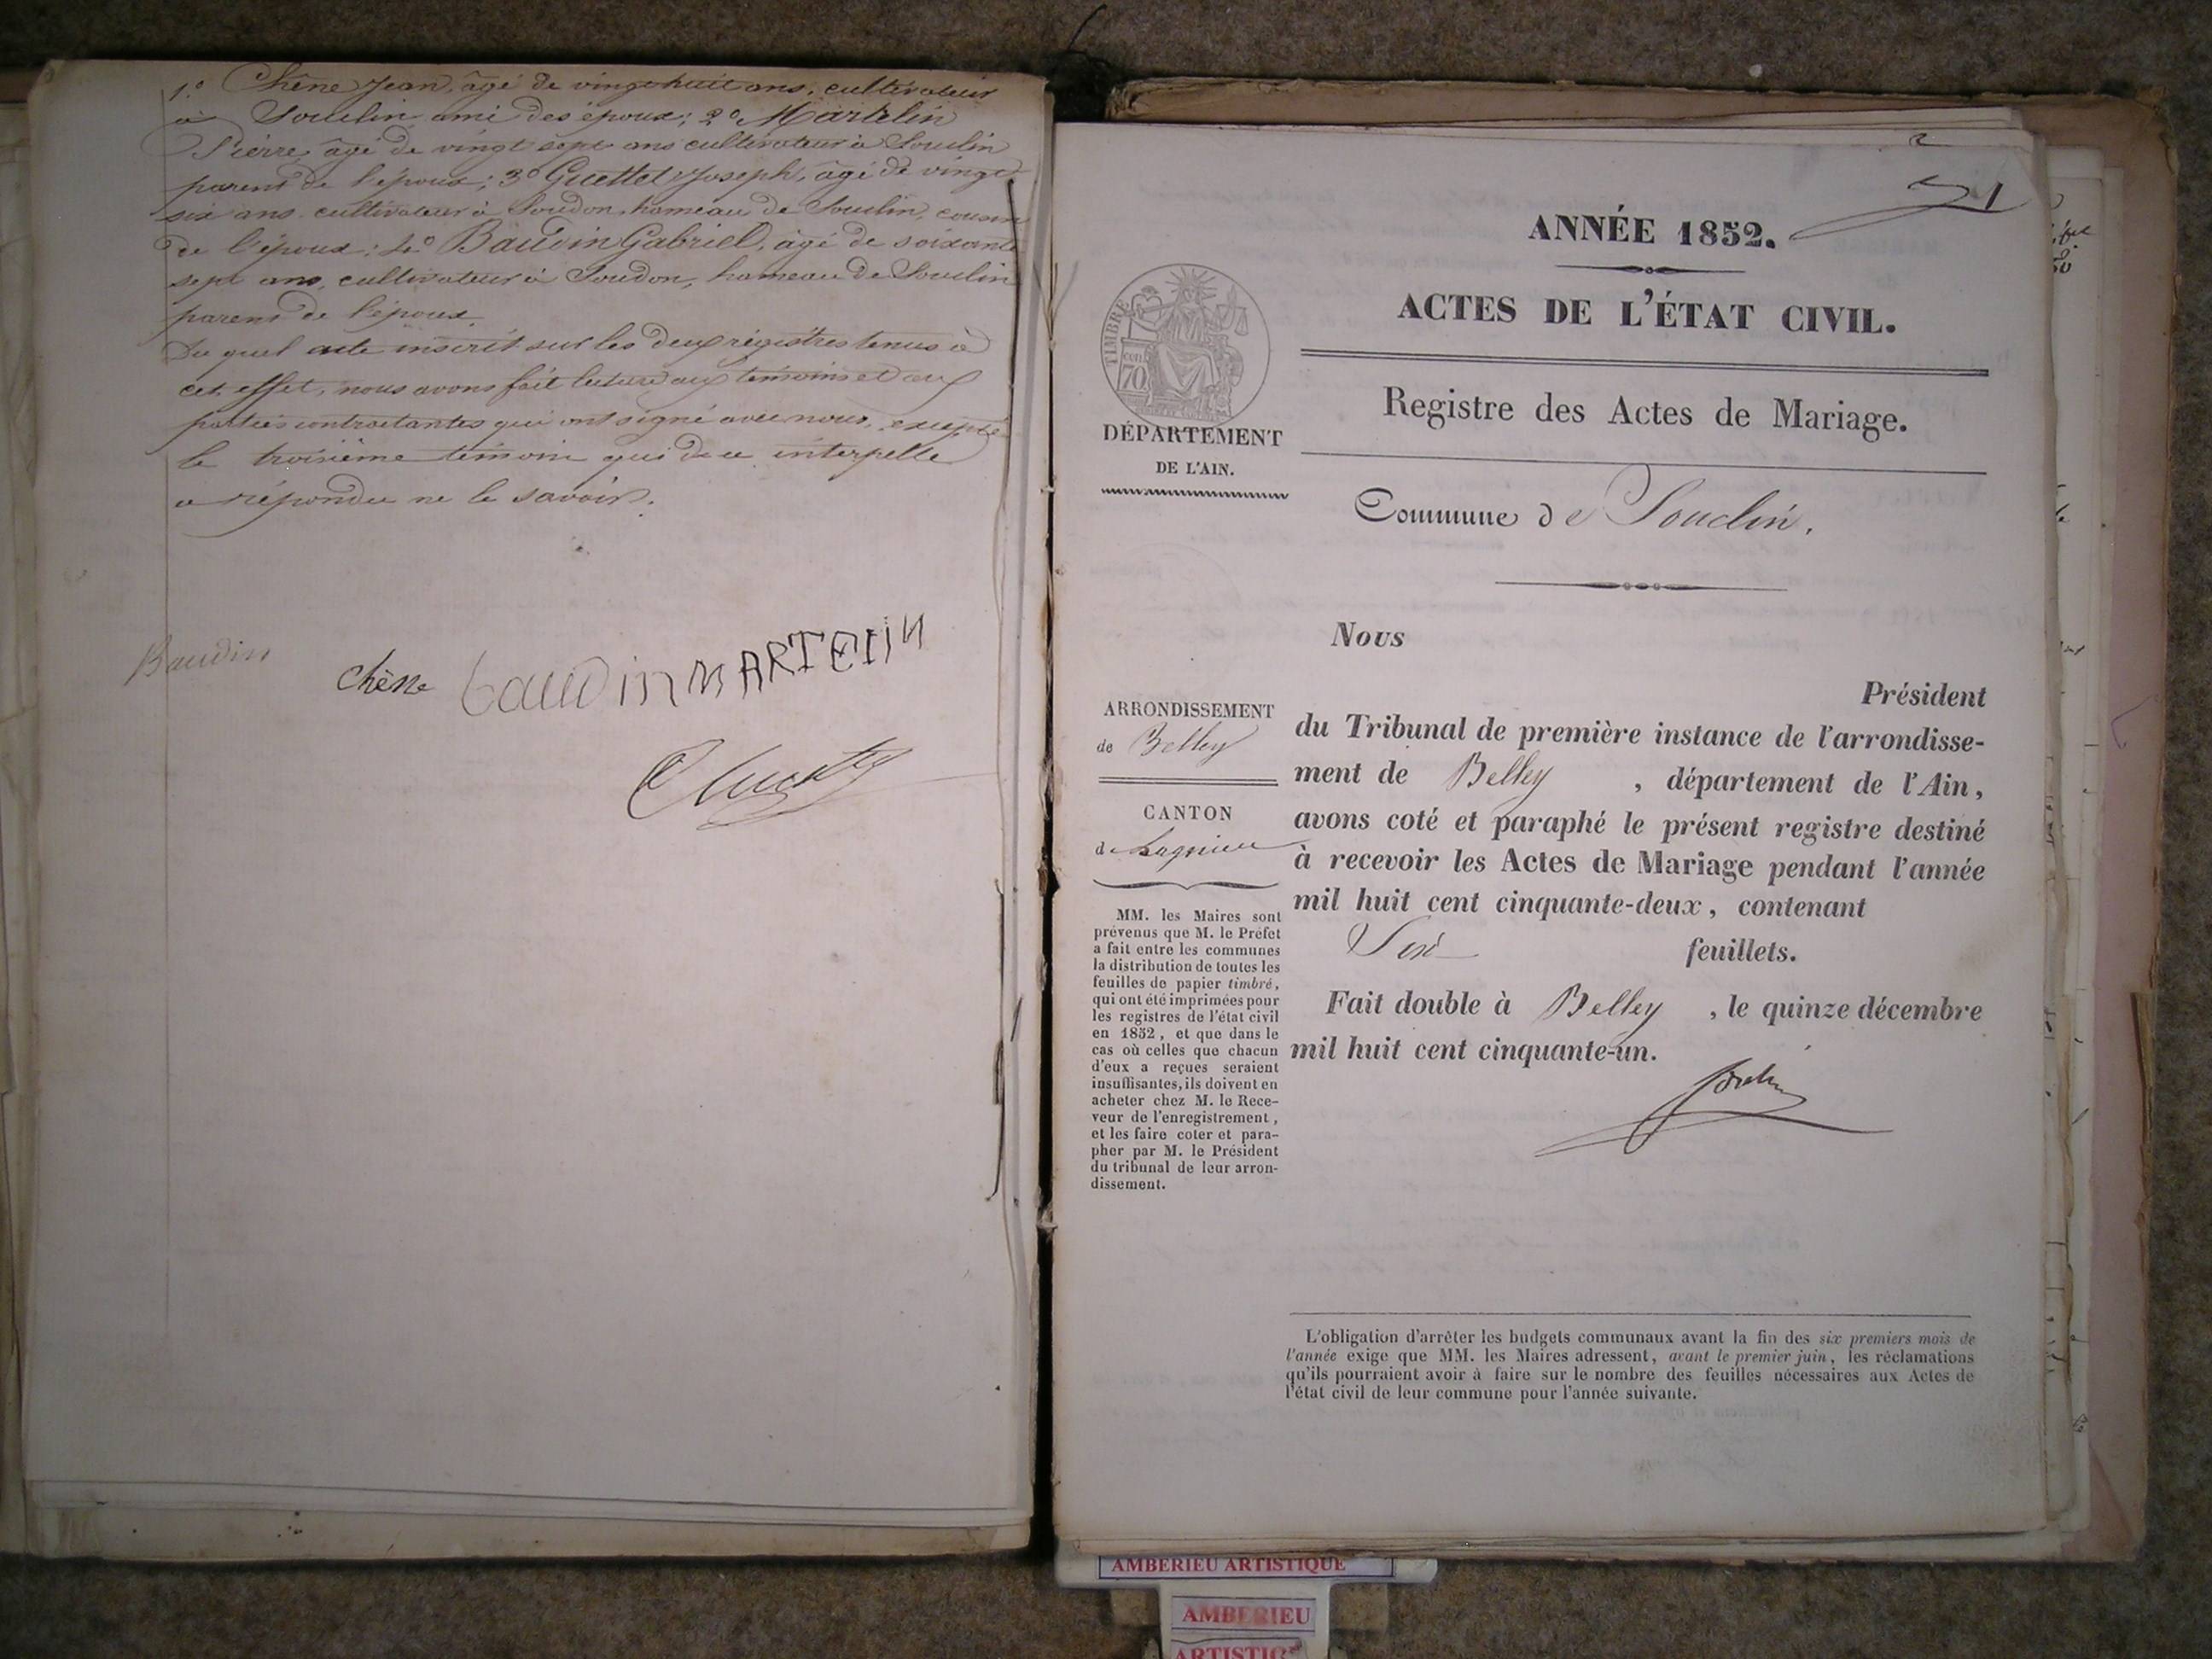 1.o Chêne Jean, âgé de vingt huit ans, cultivateur
à Souclin ami des époux; 2o Martelin
Pierre âgé de vingt sept ans cultivateur à Souclin
parent de l'époux; 3o Guettet Joseph, âgé de vingt
six ans cultivateur à Soudon, hameau de Souclin, cousin
de l'époux; 4o Baudin Gabriel, âgé de soixante
sept ans, cultivateur à Soudon, hameau de Souclin
parent de l'époux.
Du quel acte inscrit sur les deux régistres tenus à
cet effet, nous avons fait lecture aux témoins et aux
parties contractantes qui ont signé avec nous, excepté
le troisième témoin qui de ce interpellé
a répondu ne le savoir.
Baudin
chêne baudin MARTELIN
1
ANNÉE 1852.
ACTES DE L'ÉTAT CIVIL.
TIMBRE
70
DÉPARTEMENT
DE L'AIN.
Registre des Actes de Mariage.
Commune de Souclin.
Nous
Président
du Tribunal de première instance de l'arrondisse-
ment de Belley , département de l'Ain,
avons coté et paraphé le présent registre destiné
à recevoir les Actes de Mariage pendant l'année
mil huit cent cinquante-deux, contenant
Six feuillets.
Fait double à Belley , le quinze décembre
mil huit cent cinquante-un.
ARRONDISSEMENT
de Belley
CANTON
de Lagnieu
MM. les Maires sont
prévenus que M. le Préfet
a fait entre les communes
la distribution de toutes les
feuilles de papier timbré,
qui ont été imprimées pour
les registres de l'état civil
en 1852, et que dans le
cas où celles que chacun
d'eux a reçues seraient
insuffisantes, ils doivent en
acheter chez M. le Rece-
veur de l'enregistrement,
et les faire coter et para-
pher par M. le Président
du tribunal de leur arron-
dissement.
L'obligation d'arrêter les budgets communaux avant la fin des six premiers mois de
l'année exige que MM. les Maires adressent, avant le premier juin, les réclamations
qu'ils pourraient avoir à faire sur le nombre des feuilles nécessaires aux Actes de
l'état civil de leur commune pour l'année suivante.
AMBERIEU ARTISTIQUE
AMBERIEU
ARTISTIQ